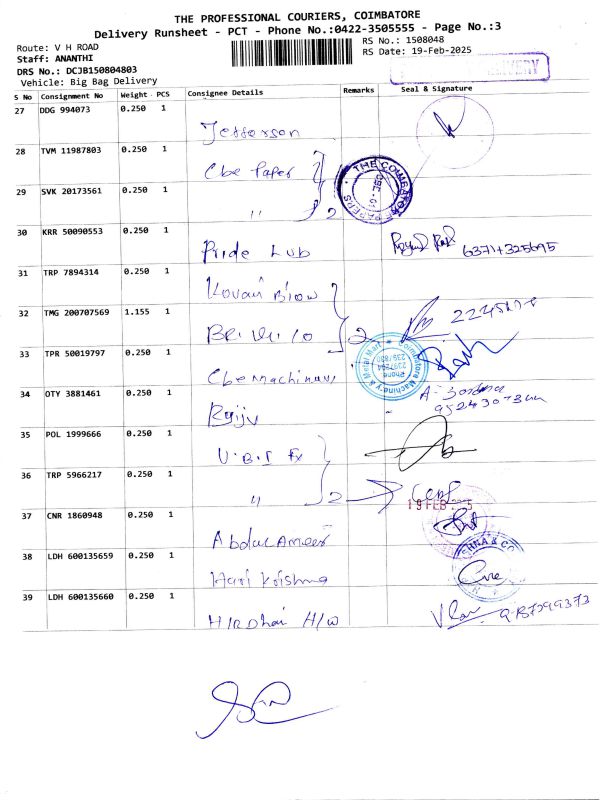 THE PROFESSIONAL COURIERS, COIMBATORE
Delivery Runsheet - PCT - Phone No.:0422-3505555 - Page No.:3
Route: V H ROAD
RS No.: 1508048
Staff: ANANTHI
RS Date: 19-Feb-2025
DRS No.: DCJB150804803
Vehicle: Big Bag Delivery
DELIVERY
S No Consignment No Weight PCS Consignee Details Remarks Seal & Signature
27 DDG 994073 0.250 1 Jefferson
28 TVM 11987803 0.250 1 Cbe Paper
29 SVK 20173561 0.250 1 " 2
THE COIMBATORE
30 KRR 50090553 0.250 1 Pride Hub
31 TRP 7894314 0.250 1 Kovai
32 TMG 200707569 1.155 1 2
33 TPR 50019797 0.250 1 Cbe Machinary
Coimbatore Machinery & Metal Mart
Phone
34 OTY 3881461 0.250 1 Baiju
35 POL 1999666 0.250 1 U.B.I
36 TRP 5966217 0.250 1 " 2
19 FEB
37 CNR 1860948 0.250 1 Abdul Ameer
38 LDH 600135659 0.250 1 Hari Krishna
39 LDH 600135660 0.250 1 H/W